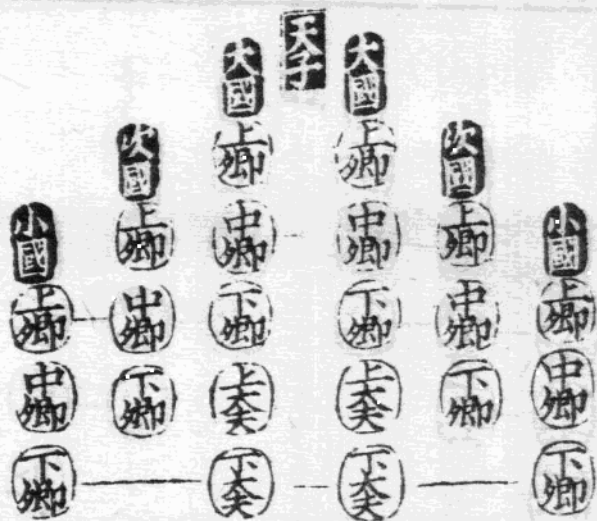 小國上卿中卿下卿
次國上卿中卿下卿
大國上卿中卿下卿上大夫下大夫
天子
大國上卿中卿下卿上大夫下大夫
次國上卿中卿下卿
小國上卿中卿下卿